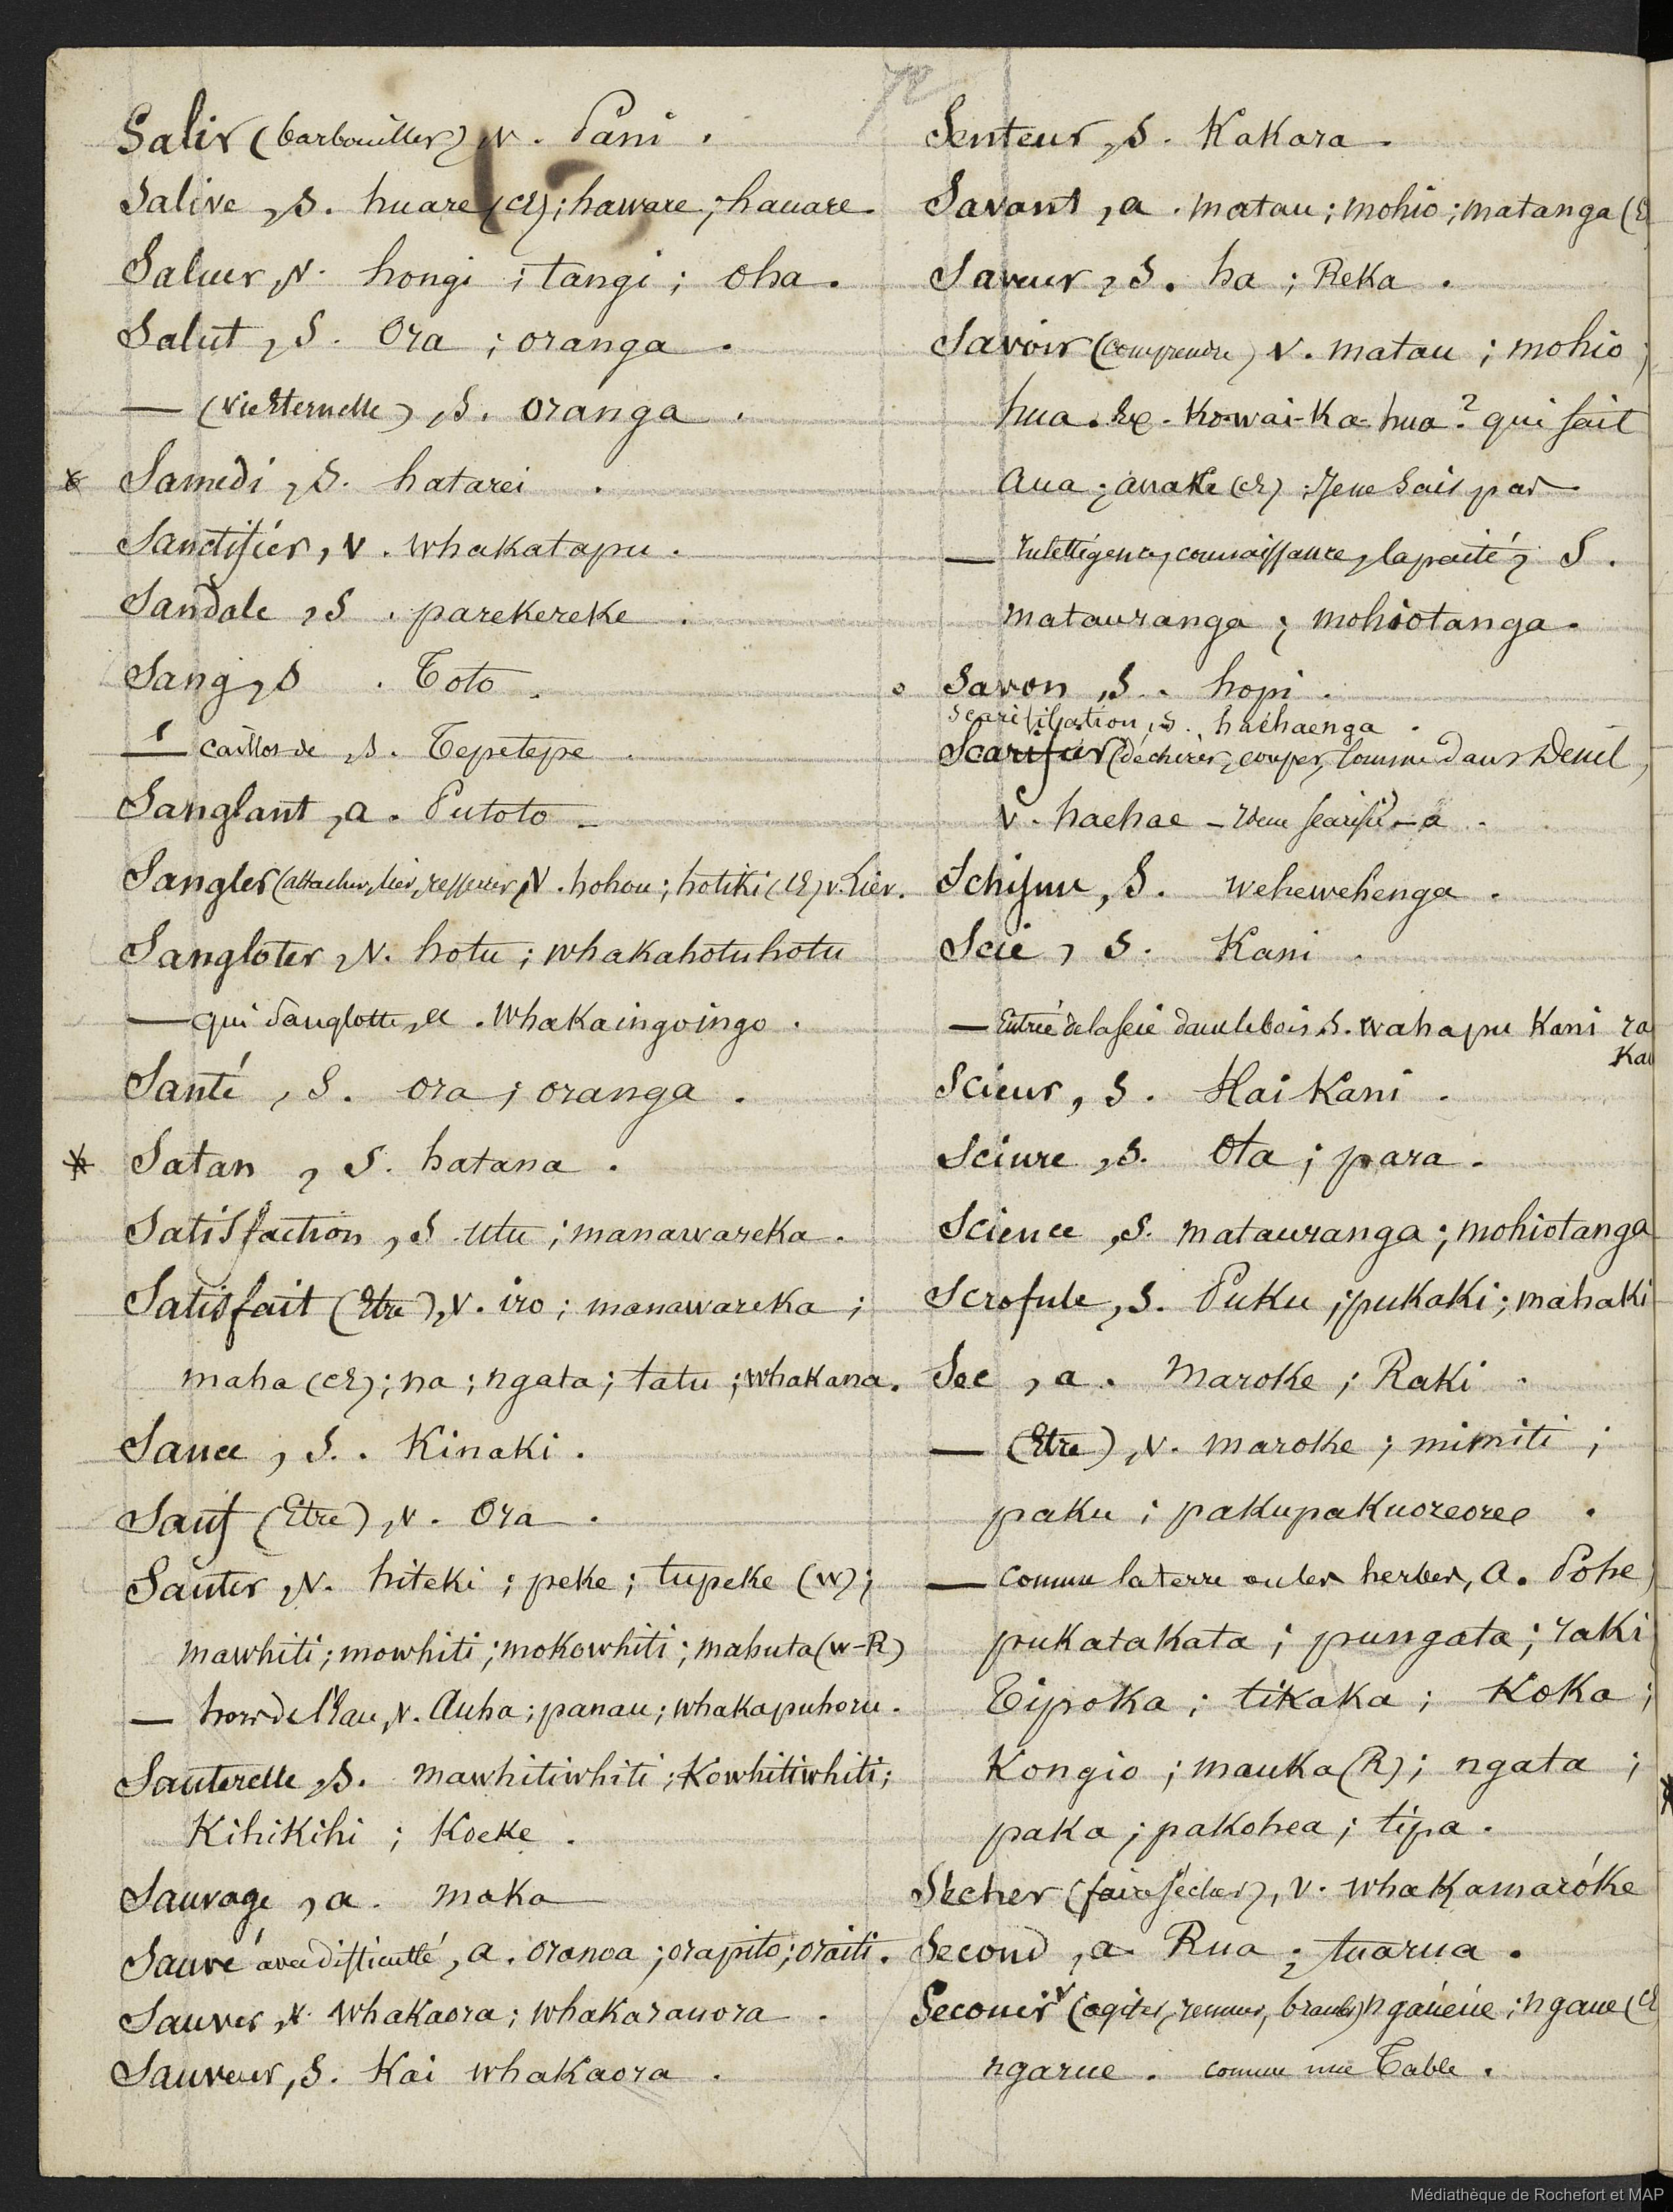 72
Salir (barbouiller), v. Pani.
Salive, s. huare (cE); haware; hauare.
Saluer, v. hongi; tangi; oha.
Salut, S. Ora; oranga.
— (vie Eternelle), s. oranga.
* Samedi, s. hatarei.
Sanctifier, v. whakatapu.
Sandale, s. parekereke.
Sang, s. Toto.
— caillos de, s. Tepetepe.
Sanglant, a. Putoto
Sangler (attacher, lier, resserrer), v. hohou; hotiki (cE) v. Lier.
Sangloter, v. hotu; whakahotuhotu
— qui Sanglotte, a. whakaingoingo.
Santé, S. ora; oranga.
* Satan, S. hatana.
Satisfaction, s. utu; manawareka.
Satisfait (Etre), v. iro; manawareka;
maha (cE); na; ngata; tatu; whakana.
Sauce, S. Kinaki.
Sauf (Etre), v. Ora.
Sauter, v. hiteki; peke; tupeke (w);
mawhiti; mowhiti; mokowhiti; mahuta (w-R)
— hors de l'Eau, v. Auha; panau; whakapuhoru.
Sauterelle, s. mawhitiwhiti; Kowhitiwhiti;
Kihikihi; Koeke.
Sauvage, a. maka
Sauvé avec difficulté, a. oranoa; orapito; oraiti.
Sauver, v. whakaora; whakarauora.
Sauveur, S. Kai whakaora.
Senteur, S. Kakara.
Savant, a. matau; mohio; matanga (E
Saveur, S. ha; Reka.
Savoir (comprendre) v. matau; mohio;
hua. Ex. Ko-wai-Ka-hua? qui sait
Aua; anake (cE). Je ne Sais pas
— Intelligence, connaissance, capacité, S.
matauranga; mohiotanga.
Savon, S. hopi.
Scarification, s. haehaenga.
Scarifier (déchirer, couper, comme dans Deuil,
v. haehae – Idem scarifié – a.
Schisme, S. wehewehenga.
Scie, S. Kani.
— Entrée de la scie dans le bois S. wahapu Kani ra
Kau
Scieur, S. Kai Kani.
Sciure, s. Ota; para.
Science, S. matauranga; mohiotanga
Scrofule, S. Puku; pukaki; mahaki
Sec, a. maroke; Raki.
— (Etre), v. maroke; mimiti;
paku; pakupakuoreoree.
— comme la terre ou les herbes, a. Pohe;
pukatakata; pungata; raki
Tipoka; tikaka; Koka;
Kongio; mauka (R); ngata;
paka; pakohea; tipa.
Sécher (faire sécher), v. whakamaróke
Second, a. Rua; tuarua.
Secouer v (agiter, remuer, branler) ngaueue; ngaue (cE
ngarue. comme une Table.
Médiathèque de Rochefort et MAP